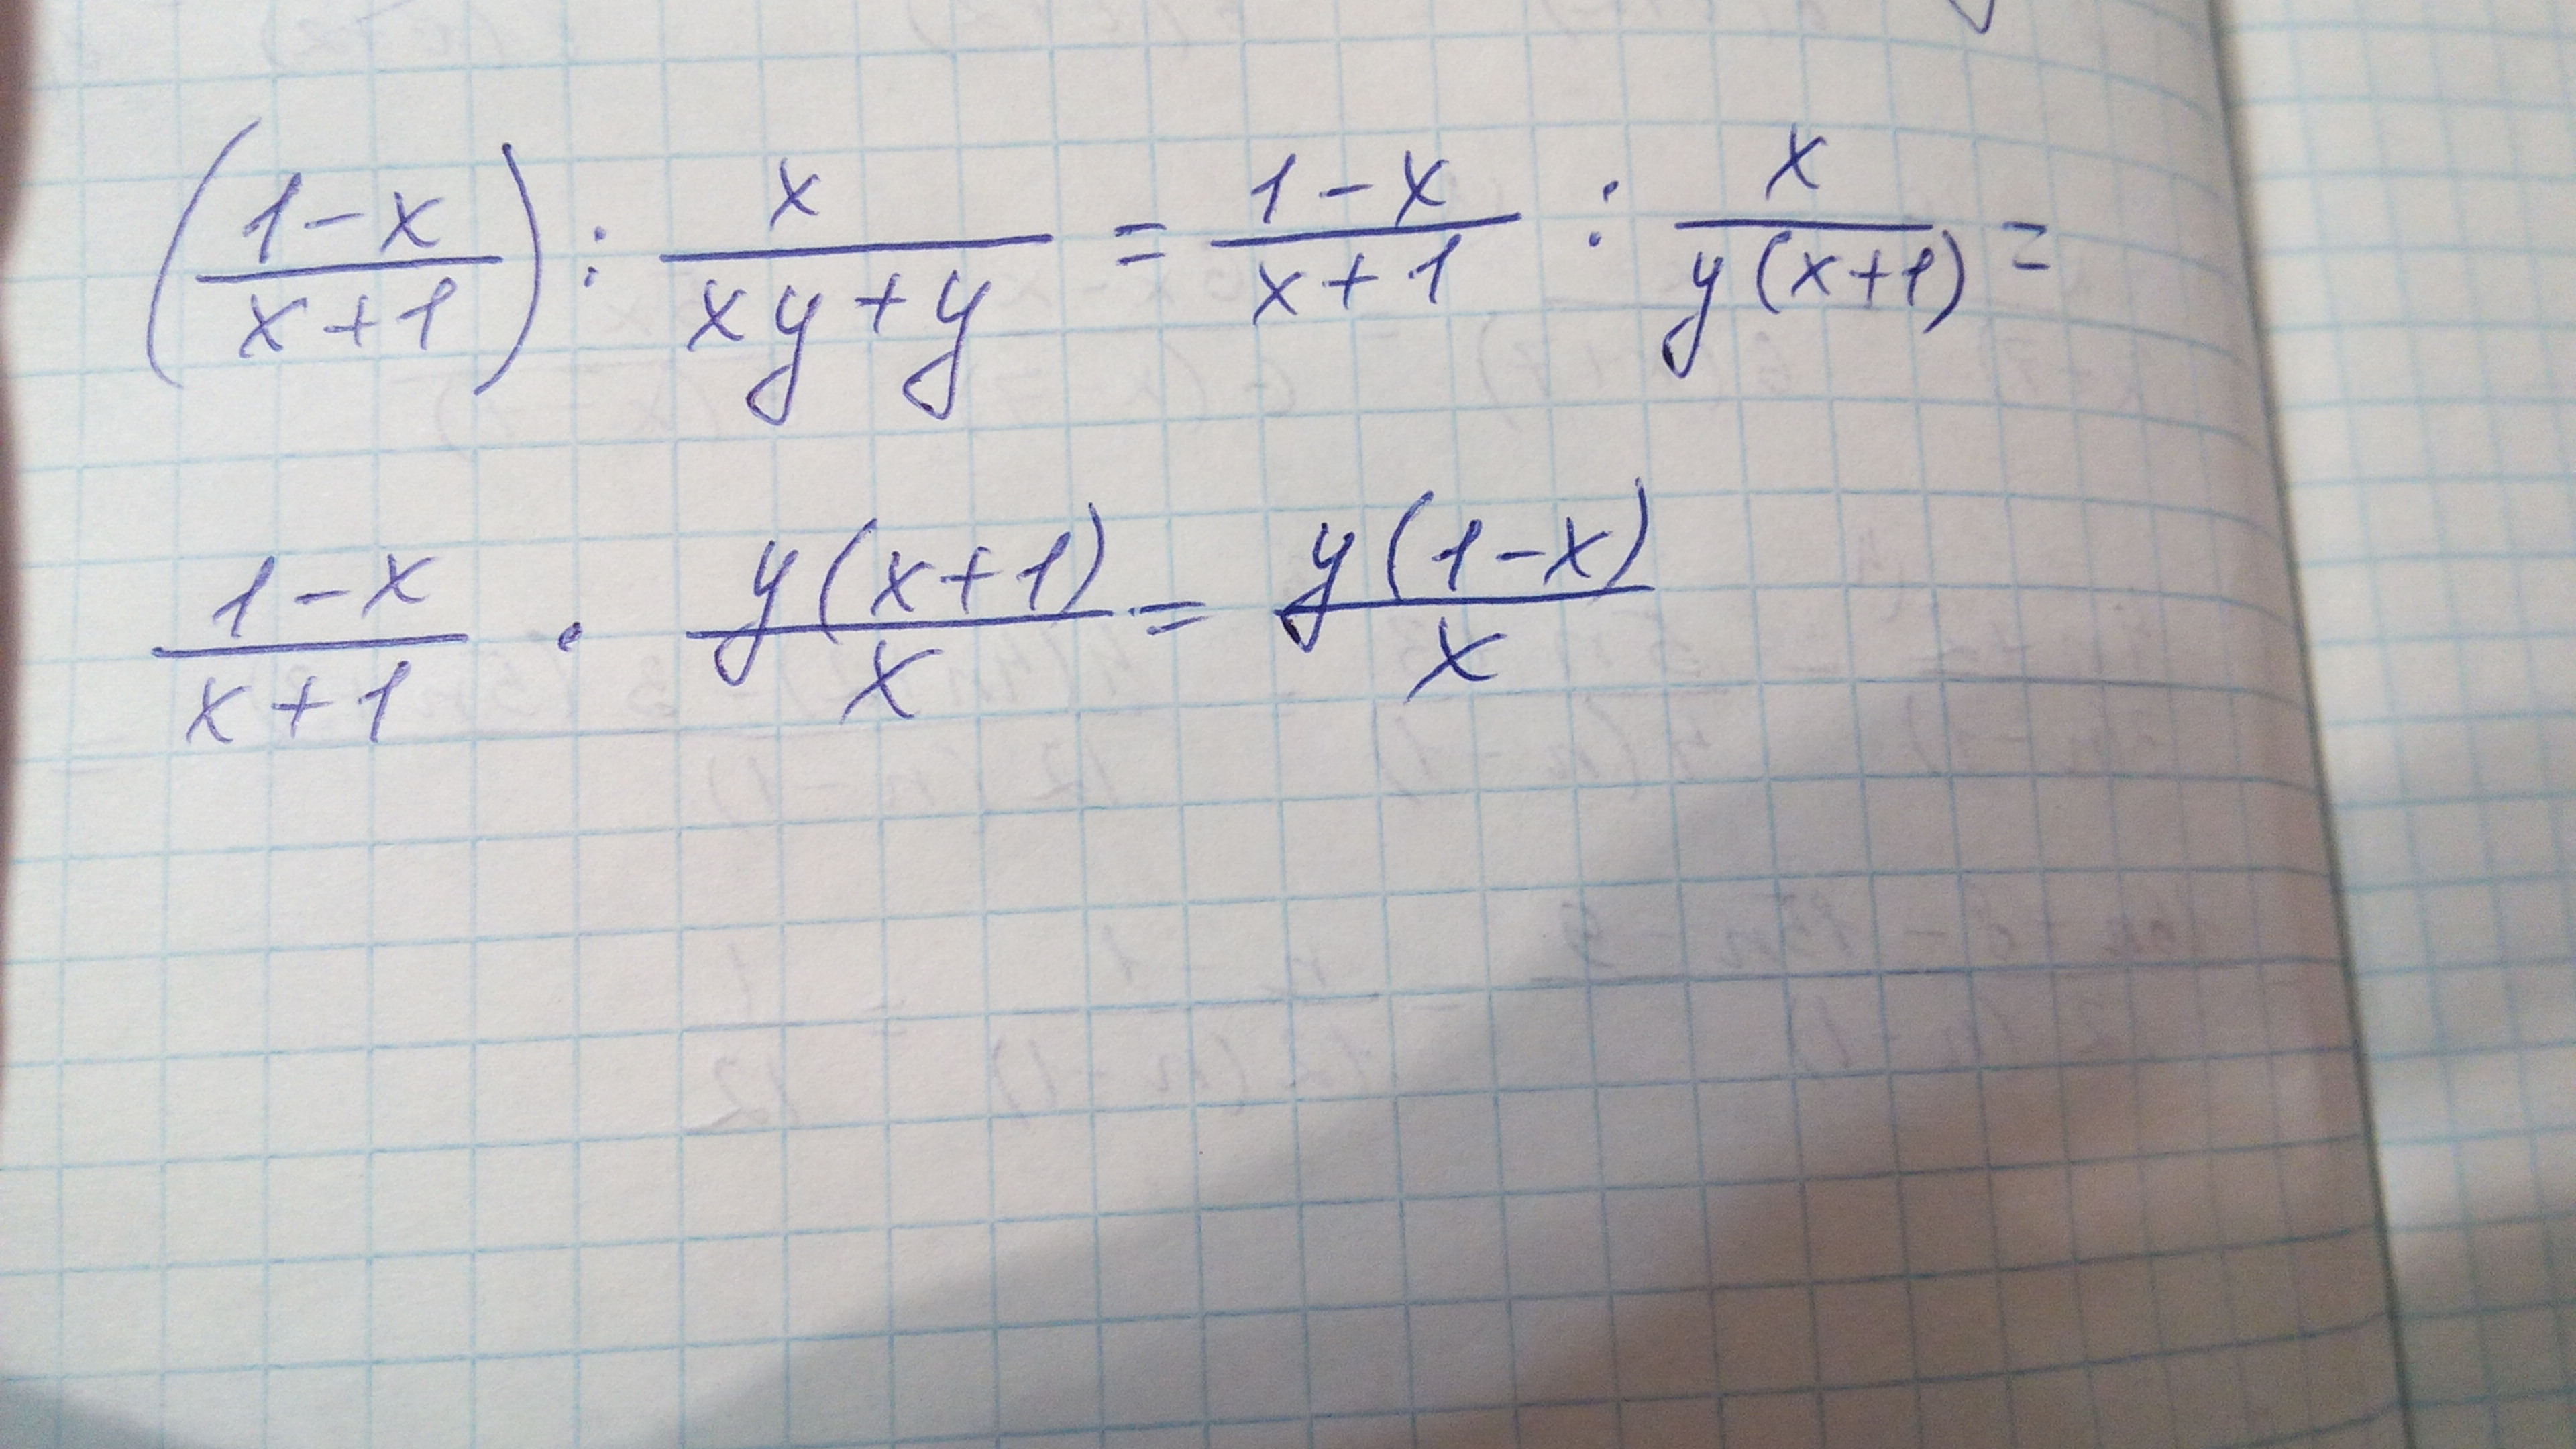 (1-x / x+1) : x / xy+y = 1-x / x+1 : x / y(x+1) =
1-x / x+1 · y(x+1) / x = y(1-x) / x